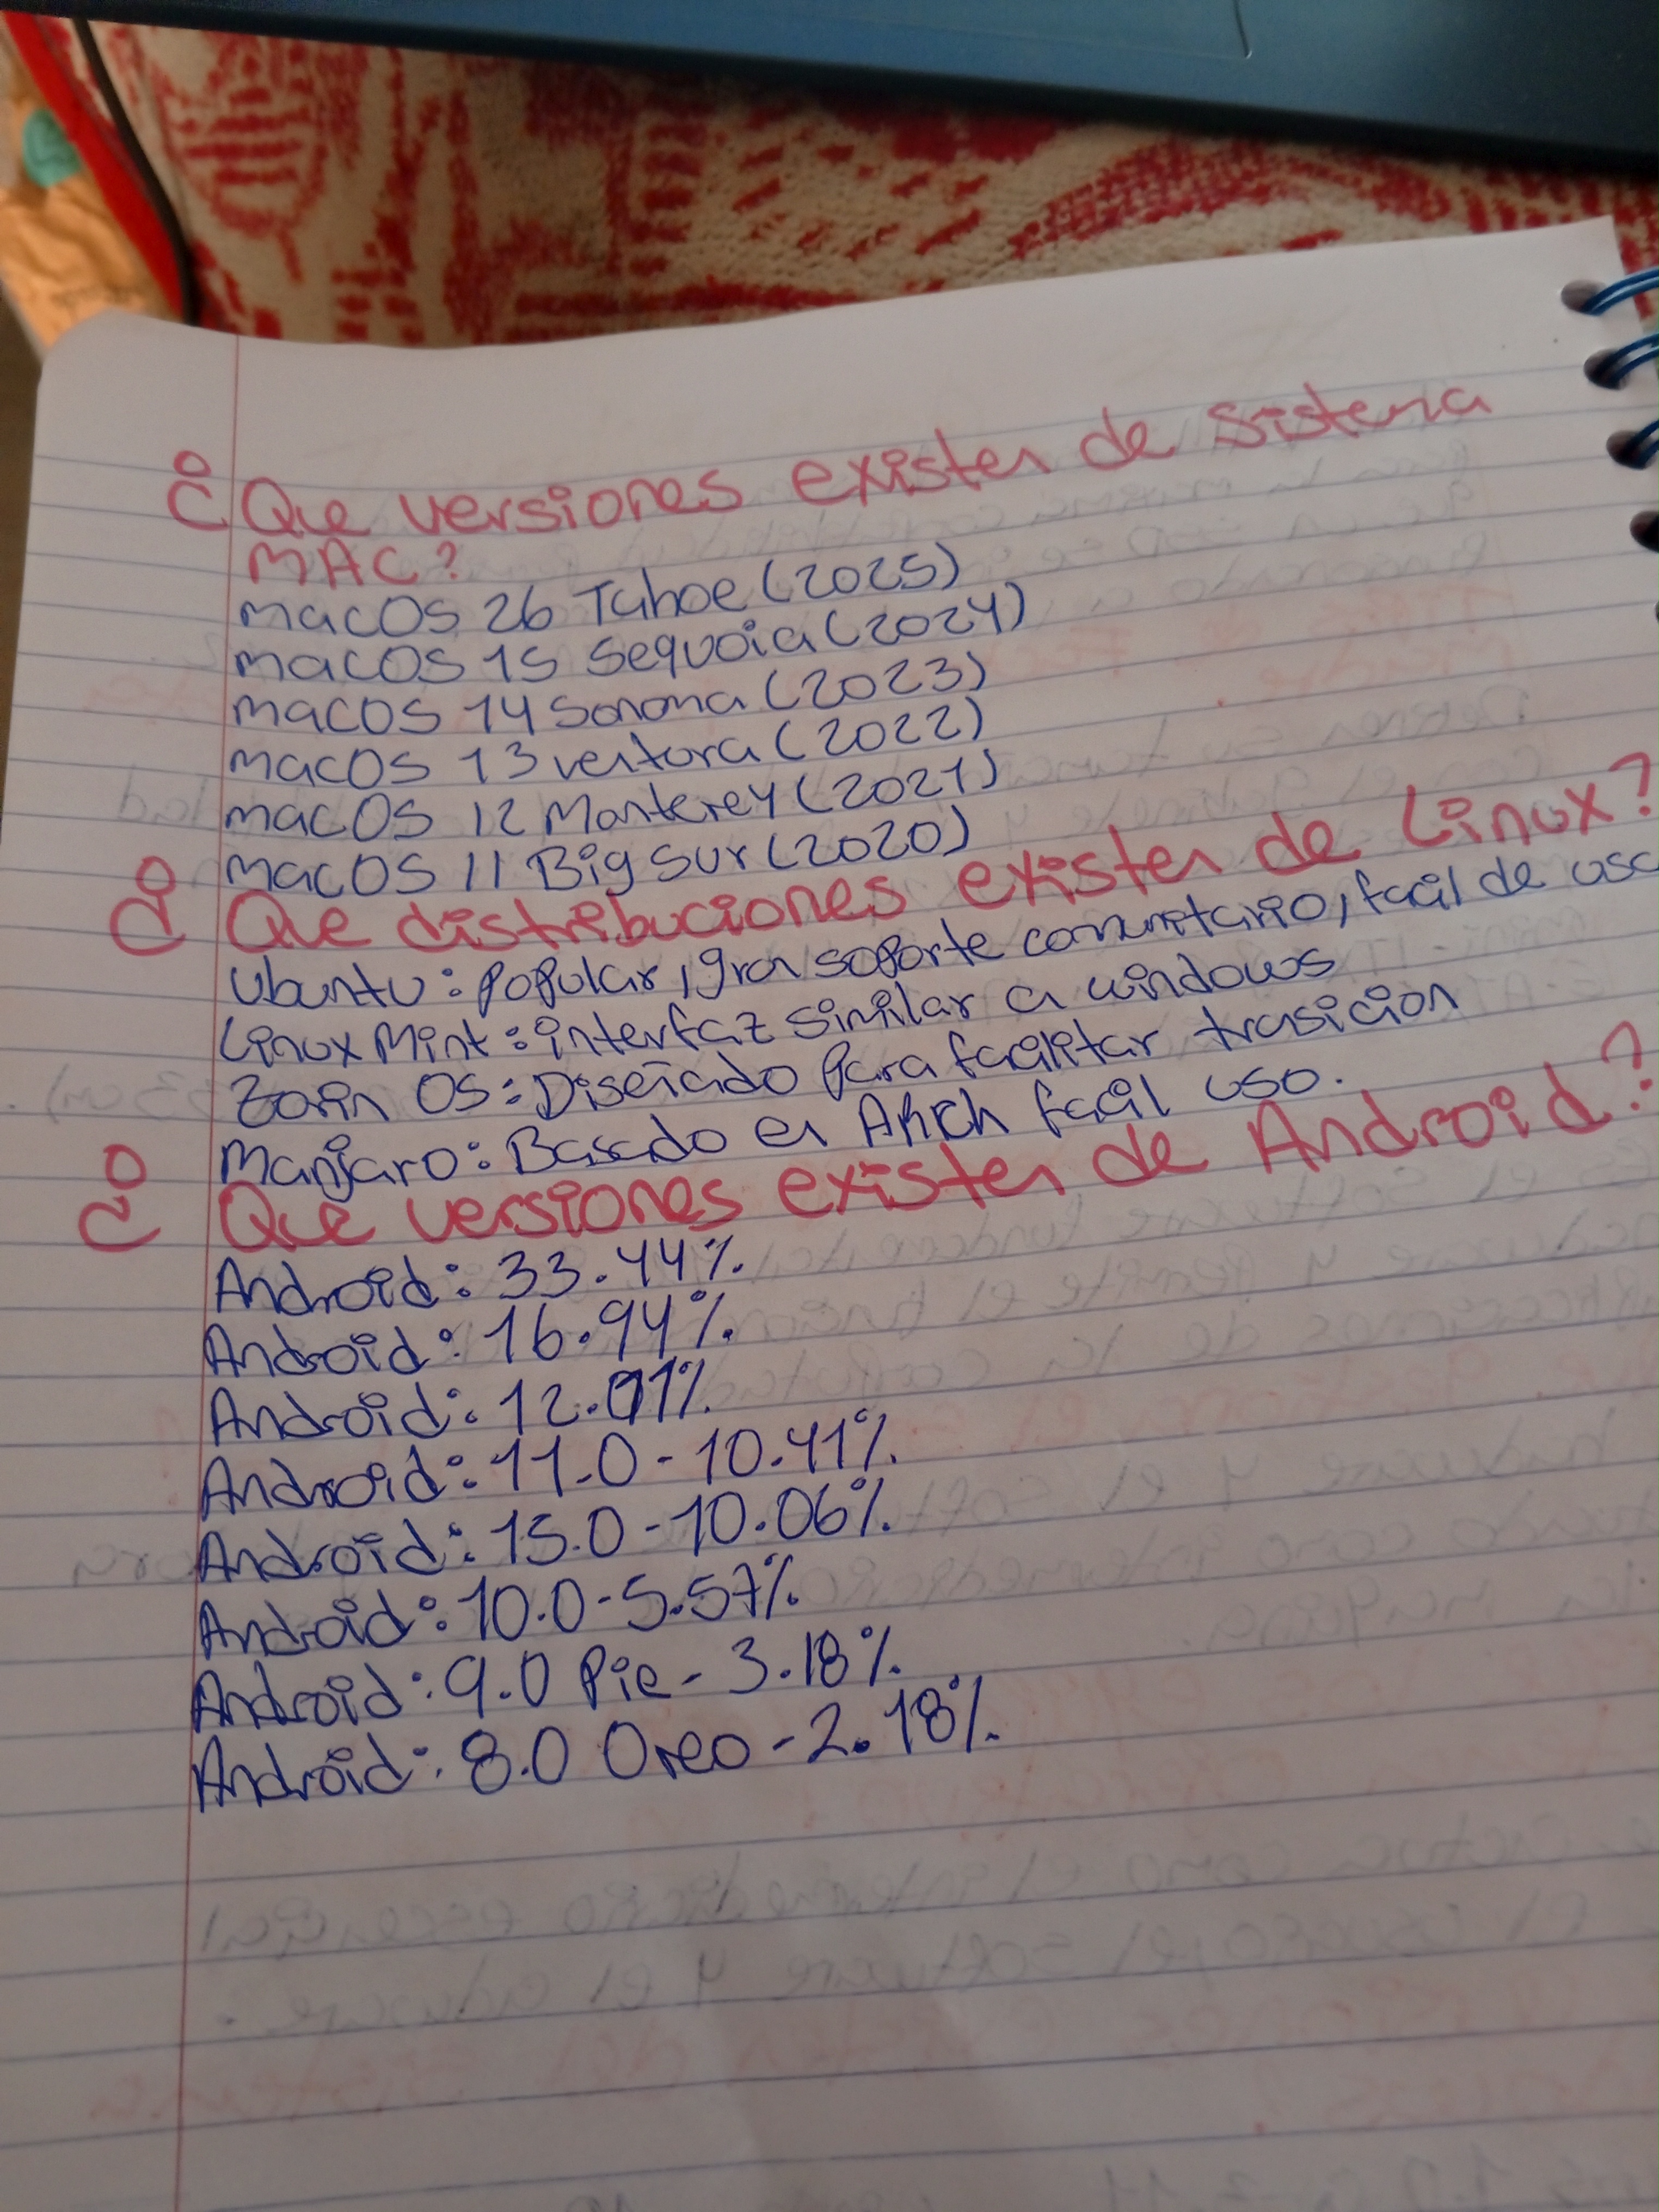 ¿Que versiones existen de sistema
MAC?
macOS 26 Tahoe (2025)
macOS 15 Sequoia (2024)
macOS 14 Sonoma (2023)
macOS 13 ventura (2022)
macOS 12 Monterey (2021)
macOS 11 Big Sur (2020)
¿Que distribuciones existen de Linux?
Ubuntu: Popular, gran soporte comunitario, facil de uso
Linux Mint: interfaz similar a windows
Zorin OS: Diseñado Para facilitar trasicion
Manjaro: Basado en Arch facil uso.
¿Que versiones existen de Android?
Android: 33.44%
Android: 16.94%
Android: 12.01%
Android: 11.0 - 10.41%
Android: 15.0 - 10.06%
Android: 10.0 - 5.57%
Android: 9.0 Pie - 3.18%
Android: 8.0 Oreo - 2.18%